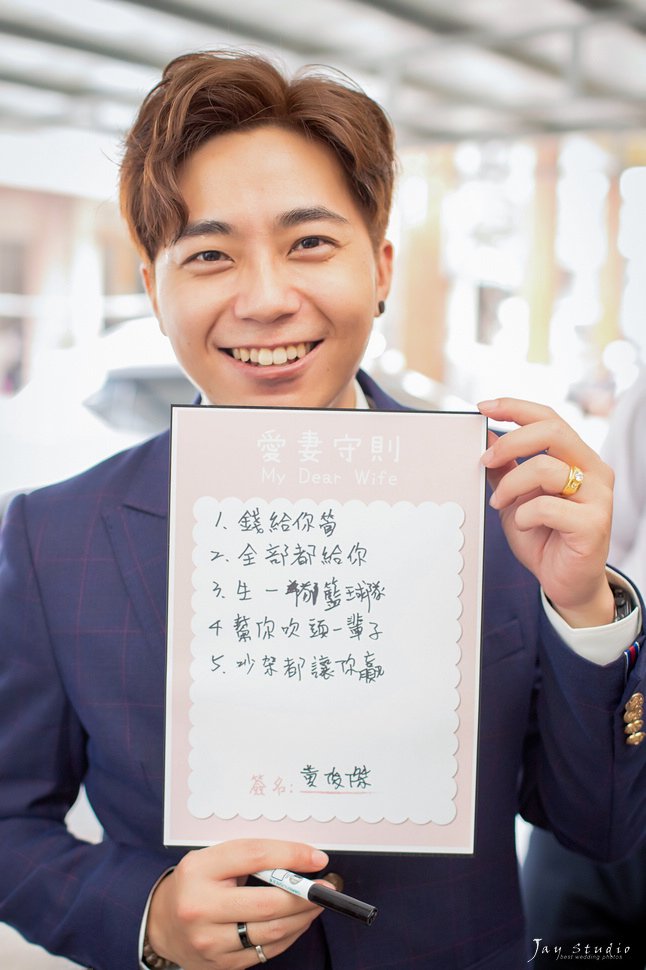 愛妻守則
My Dear Wife
1. 錢給你管
2. 全部都給你
3. 生一 籃球隊
4 幫你吹頭一輩子
5. 吵架都讓你贏
簽名: 俊傑
Jay Studio
best wedding photos